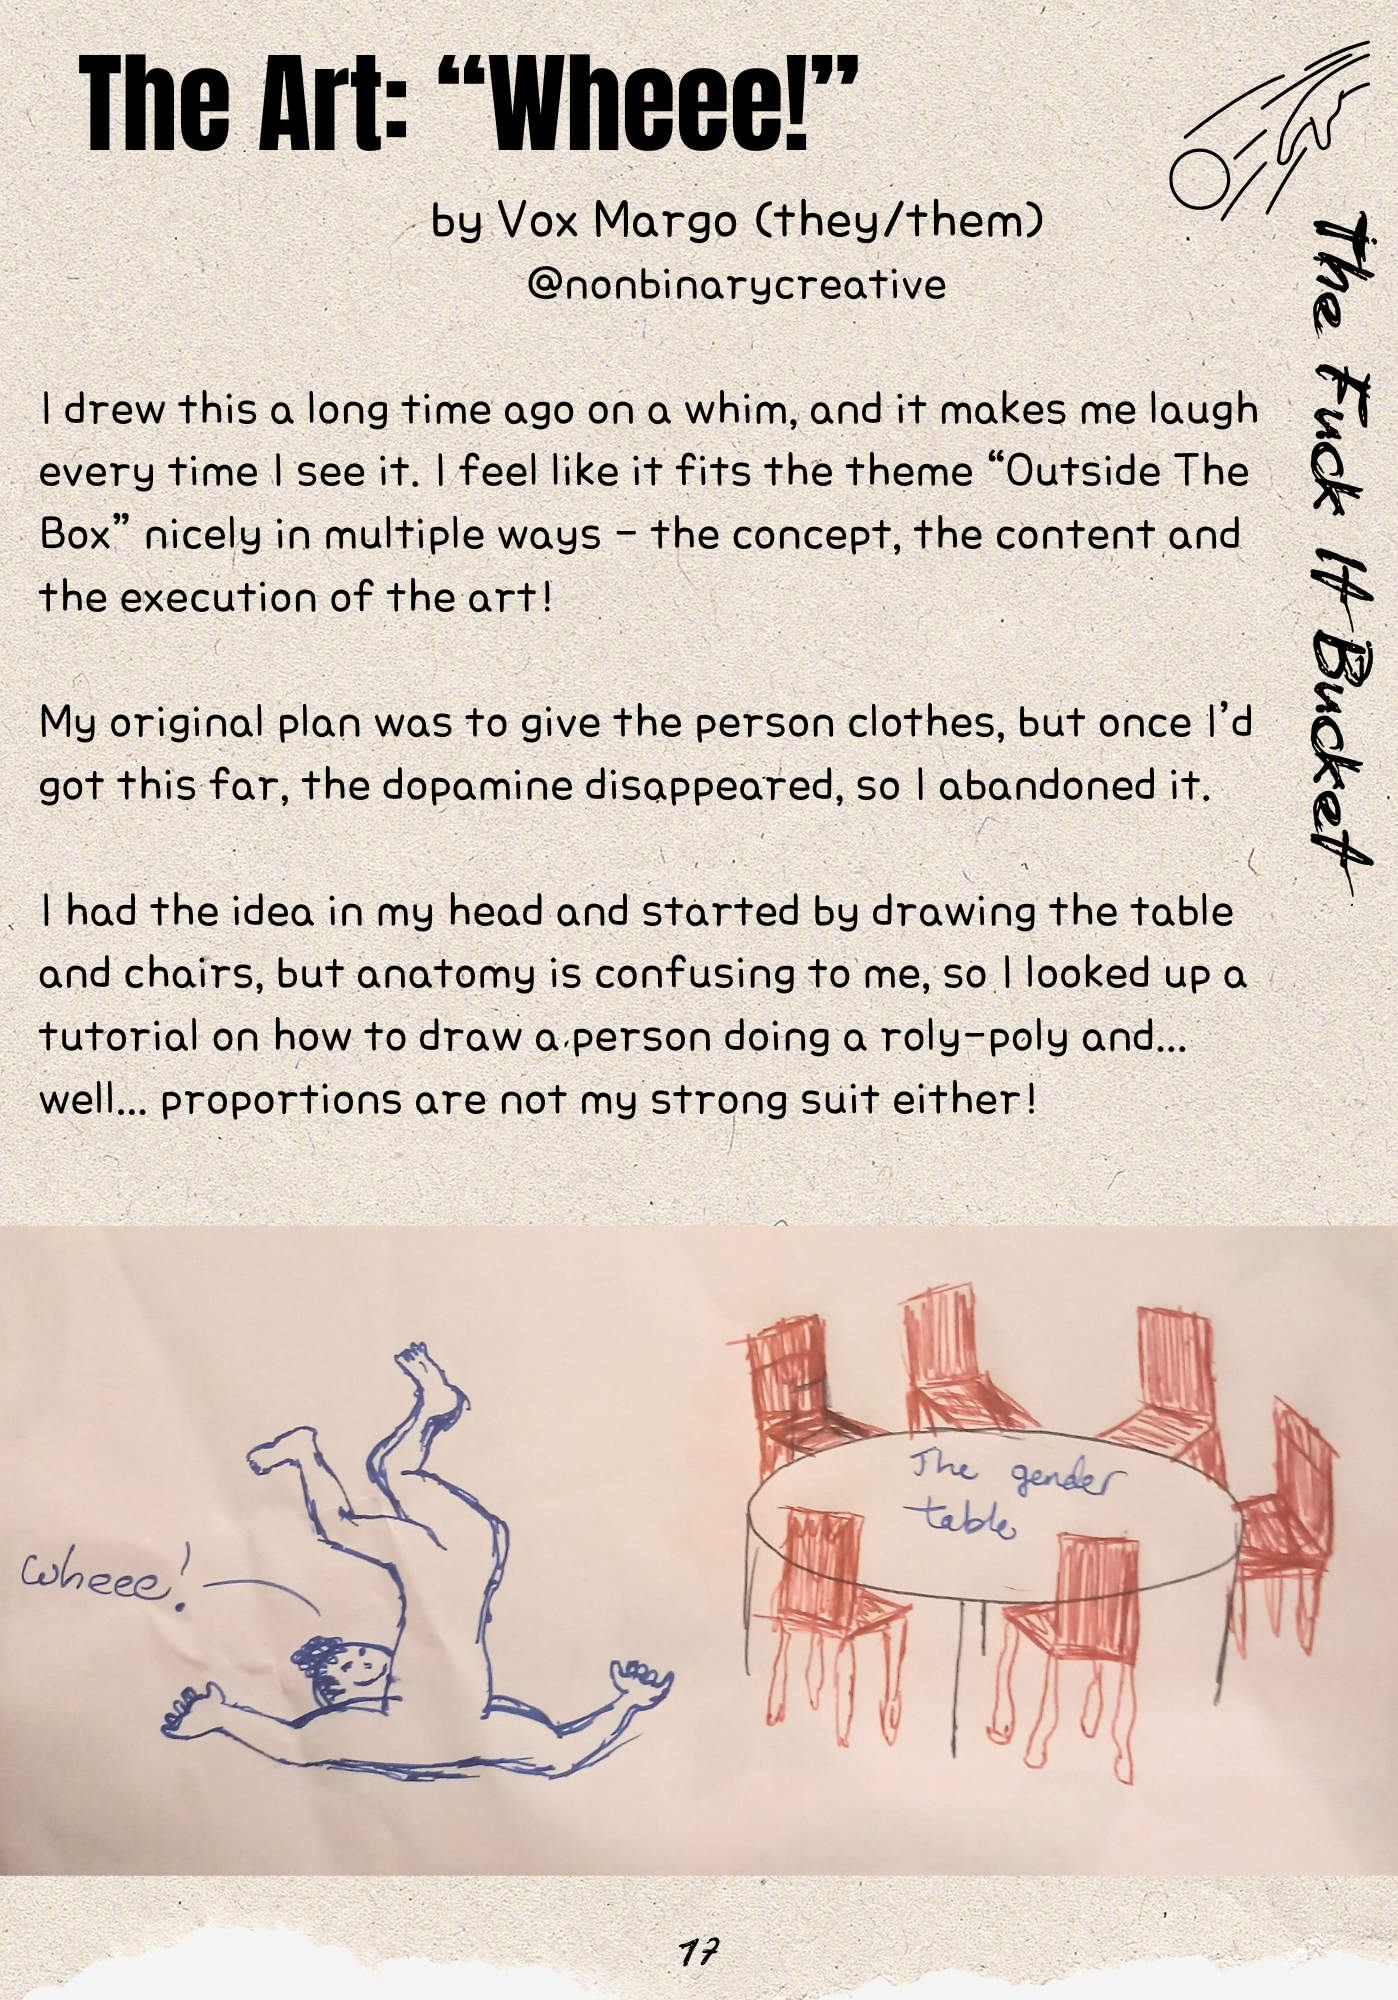 The Art: “Wheee!”
by Vox Margo (they/them)
@nonbinarycreative
The Fuck It Bucket
I drew this a long time ago on a whim, and it makes me laugh
every time I see it. I feel like it fits the theme “Outside The
Box” nicely in multiple ways – the concept, the content and
the execution of the art!
My original plan was to give the person clothes, but once I’d
got this far, the dopamine disappeared, so I abandoned it.
I had the idea in my head and started by drawing the table
and chairs, but anatomy is confusing to me, so I looked up a
tutorial on how to draw a person doing a roly-poly and...
well... proportions are not my strong suit either!
wheee!
The gender
table
17